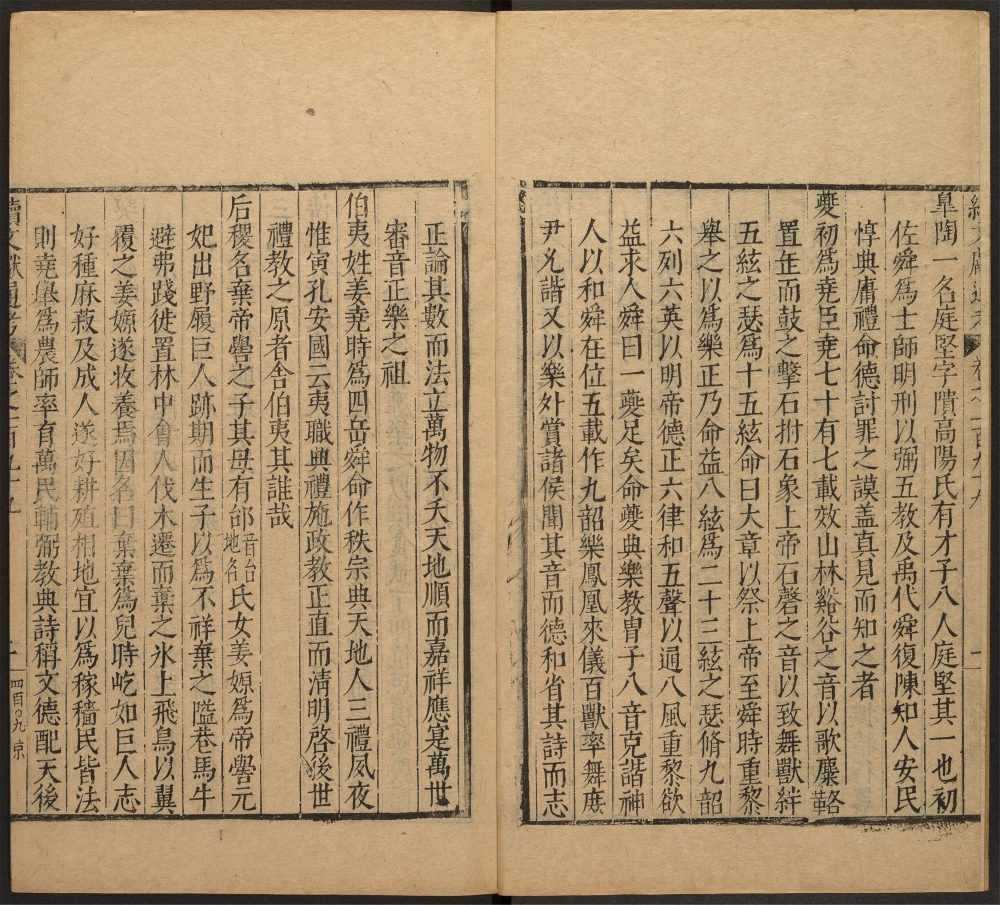 臯陶一名庭堅字隤高陽氏有才子八人庭堅其一也初
佐舜爲士師明刑以弼五教及禹代舜復陳知人安民
惇典庸禮命德討罪之謨盖真見而知之者
夔初爲堯臣堯七十有七載效山林谿谷之音以歌麋䩭
置缶而鼓之擊石拊石象上帝石磬之音以致舞獸絆
五絃之瑟爲十五絃命曰大章以祭上帝至舜時重黎
舉之以爲樂正乃命益八絃爲二十三絃之瑟脩九韶
六列六英以明帝德正六律和五聲以通八風重黎欲
益求人舜曰一夔足矣命夔典樂教胄子八音克諧神
人以和舜在位五載作九韶樂鳳凰來儀百獸率舞庶
尹允諧又以樂外賞諸侯聞其音而德和省其詩而志
正論其數而法立萬物不夭天地順而嘉祥應寔萬世
審音正樂之祖
伯夷姓姜堯時爲四岳舜命作秩宗典天地人三禮夙夜
惟寅孔安國云夷職典禮施政教正直而淸明啓後世
禮教之原者舍伯夷其誰哉
后稷名棄帝嚳之子其母有邰音台地名氏女姜嫄爲帝嚳元
妃出野履巨人跡期而生子以爲不祥棄之隘巷馬牛
避弗踐徙置林中會人伐木遷而棄之氷上飛鳥以翼
覆之姜嫄遂收養焉因名曰棄棄爲兒時屹如巨人志
好種麻菽及成人遂好耕殖相地宜以爲稼穡民皆法
則堯舉爲農師率育萬民輔弼教典詩稱文德配天後
續文獻通考 卷之一百九十九
一 四百〇九 京